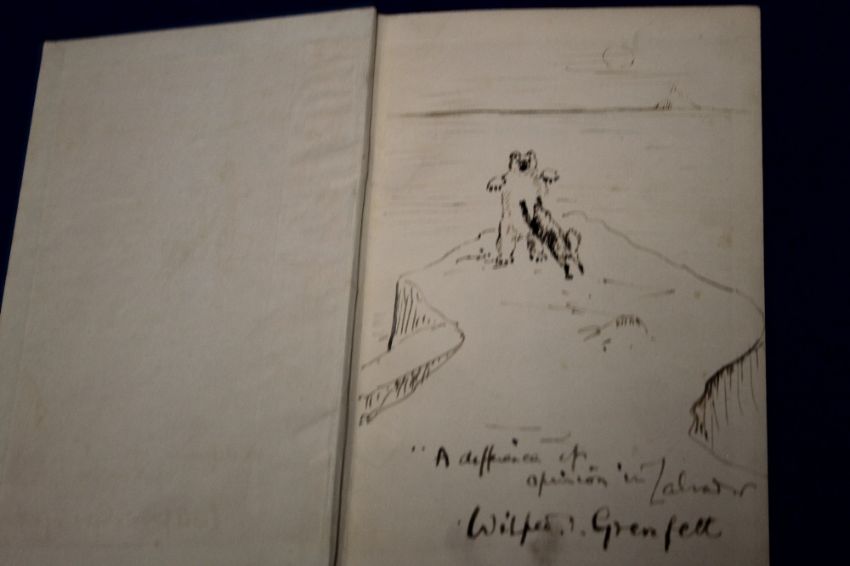 "A difference of
opinion" in Labrador
Wilfred T. Grenfell